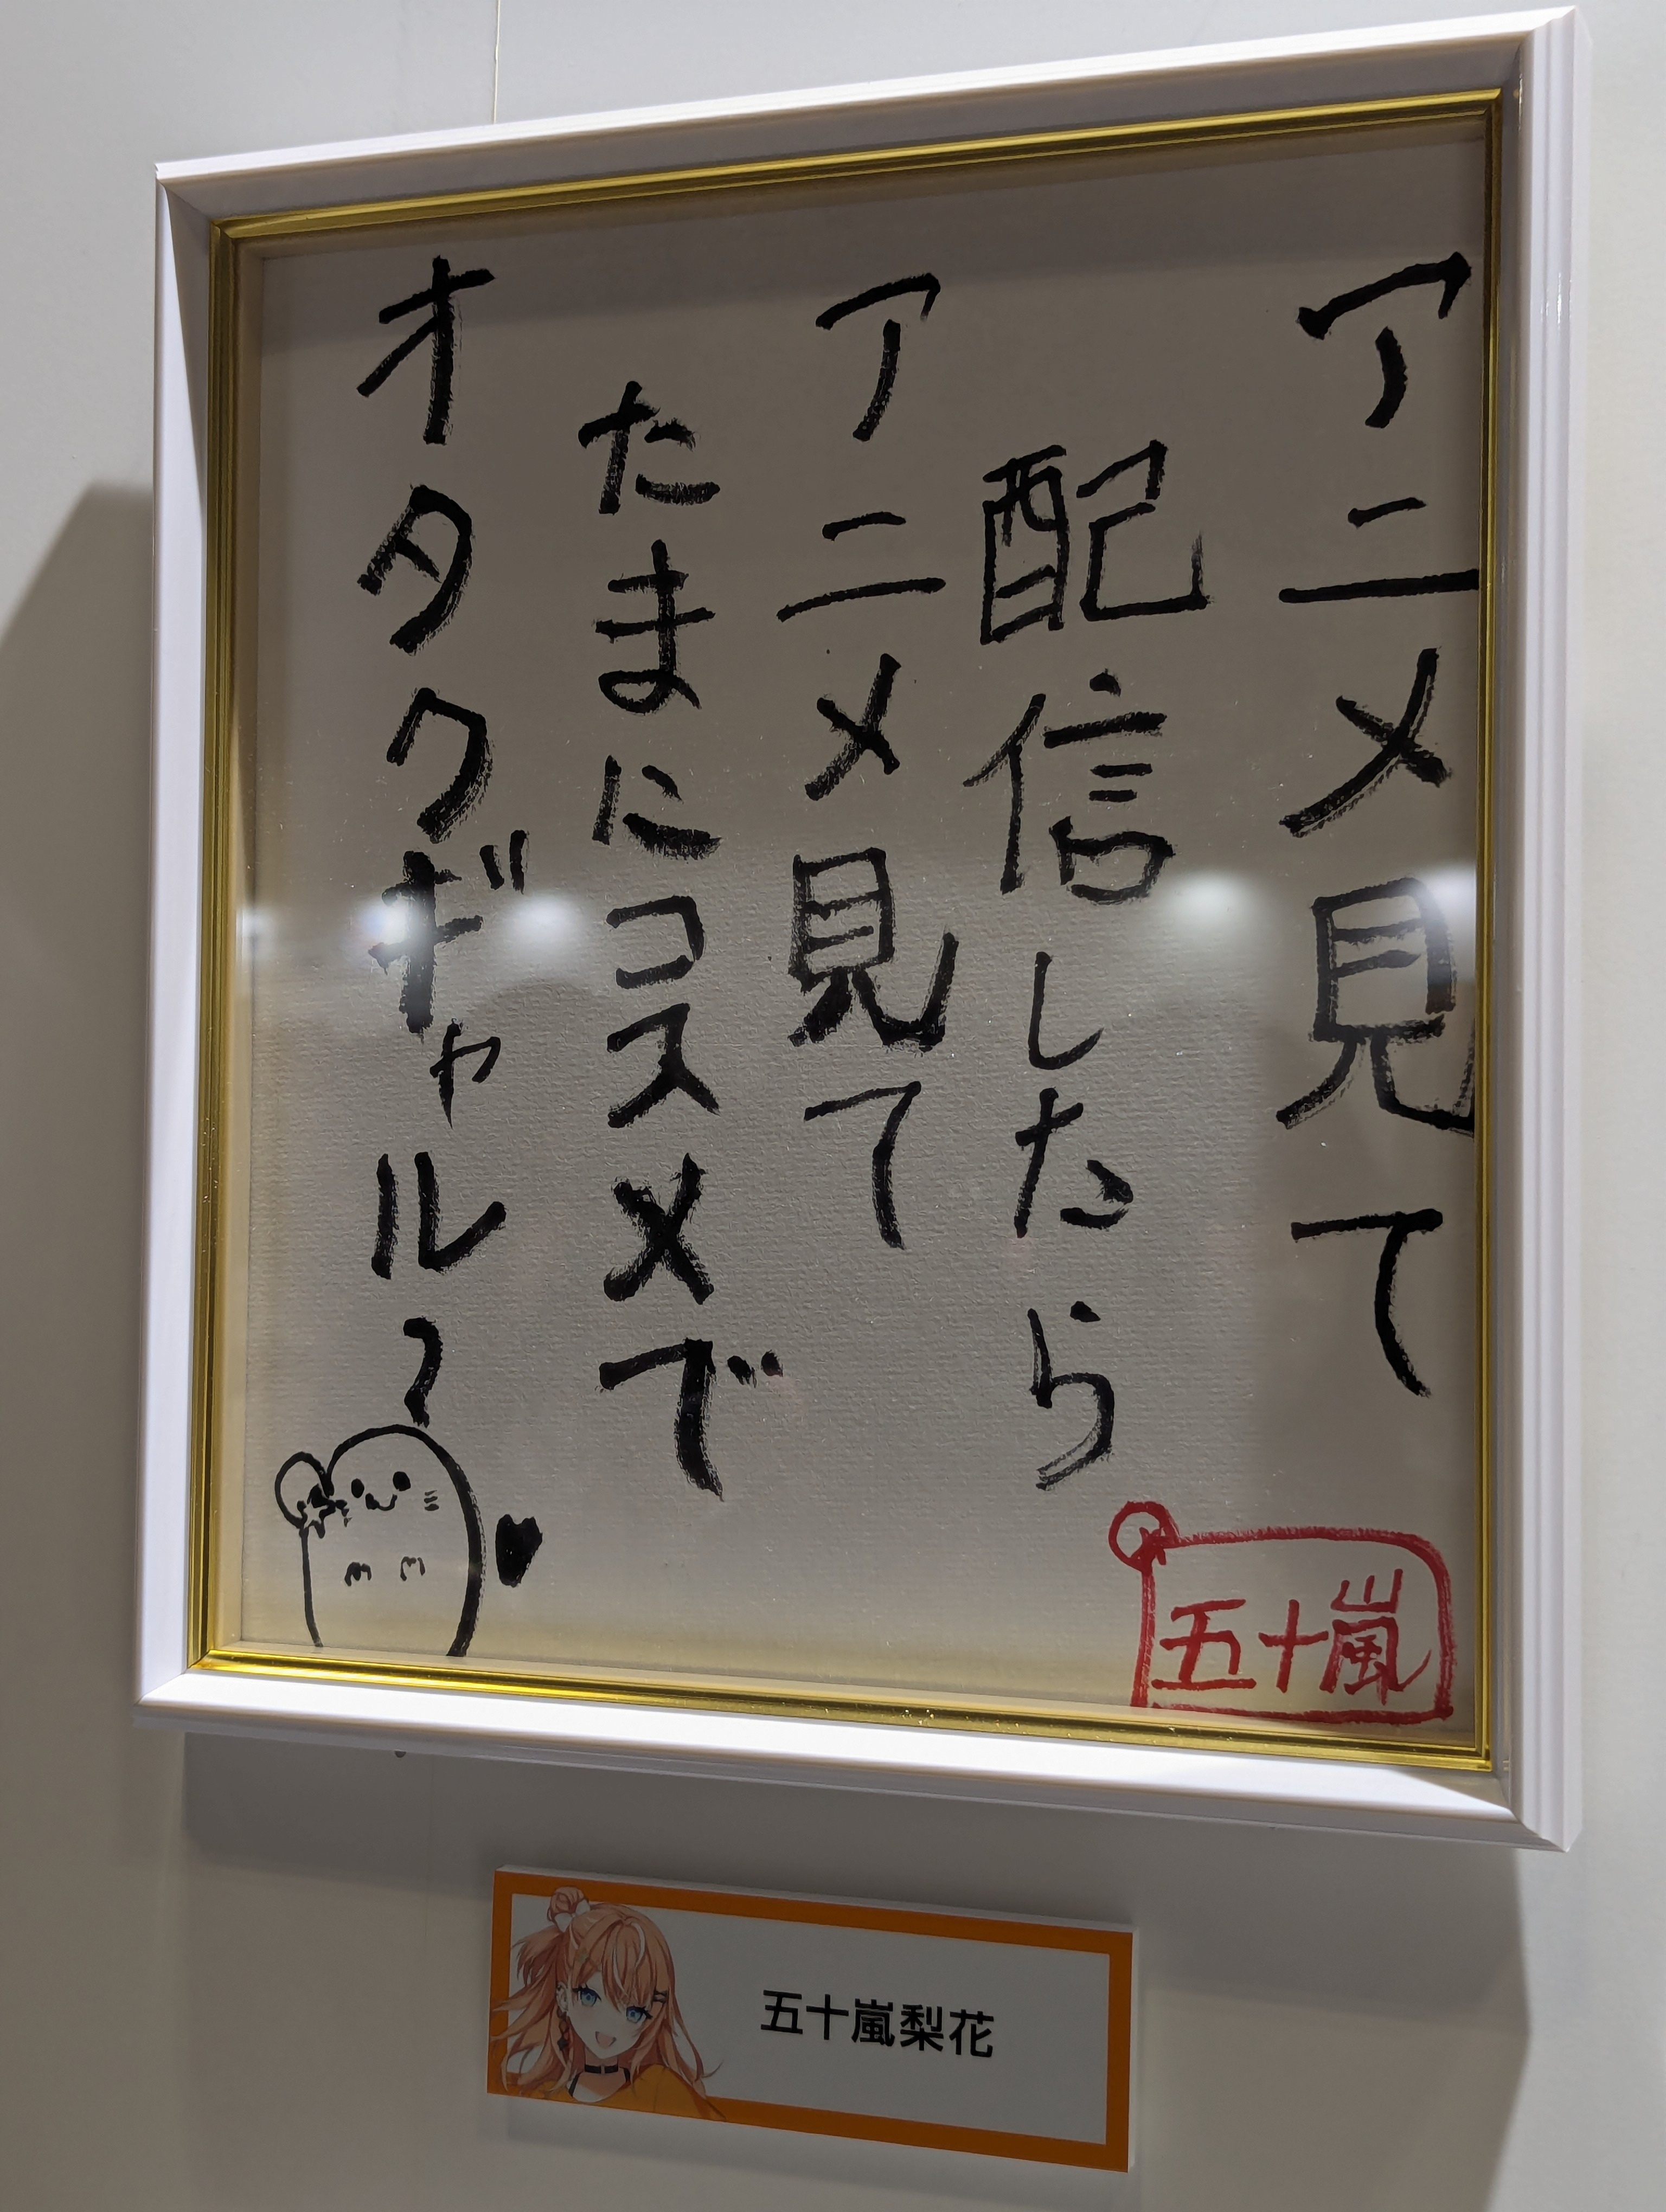 アニメ見て
配信したら
アニメ見て
たまにコスメで
オタクギャル？
五十嵐
五十嵐梨花